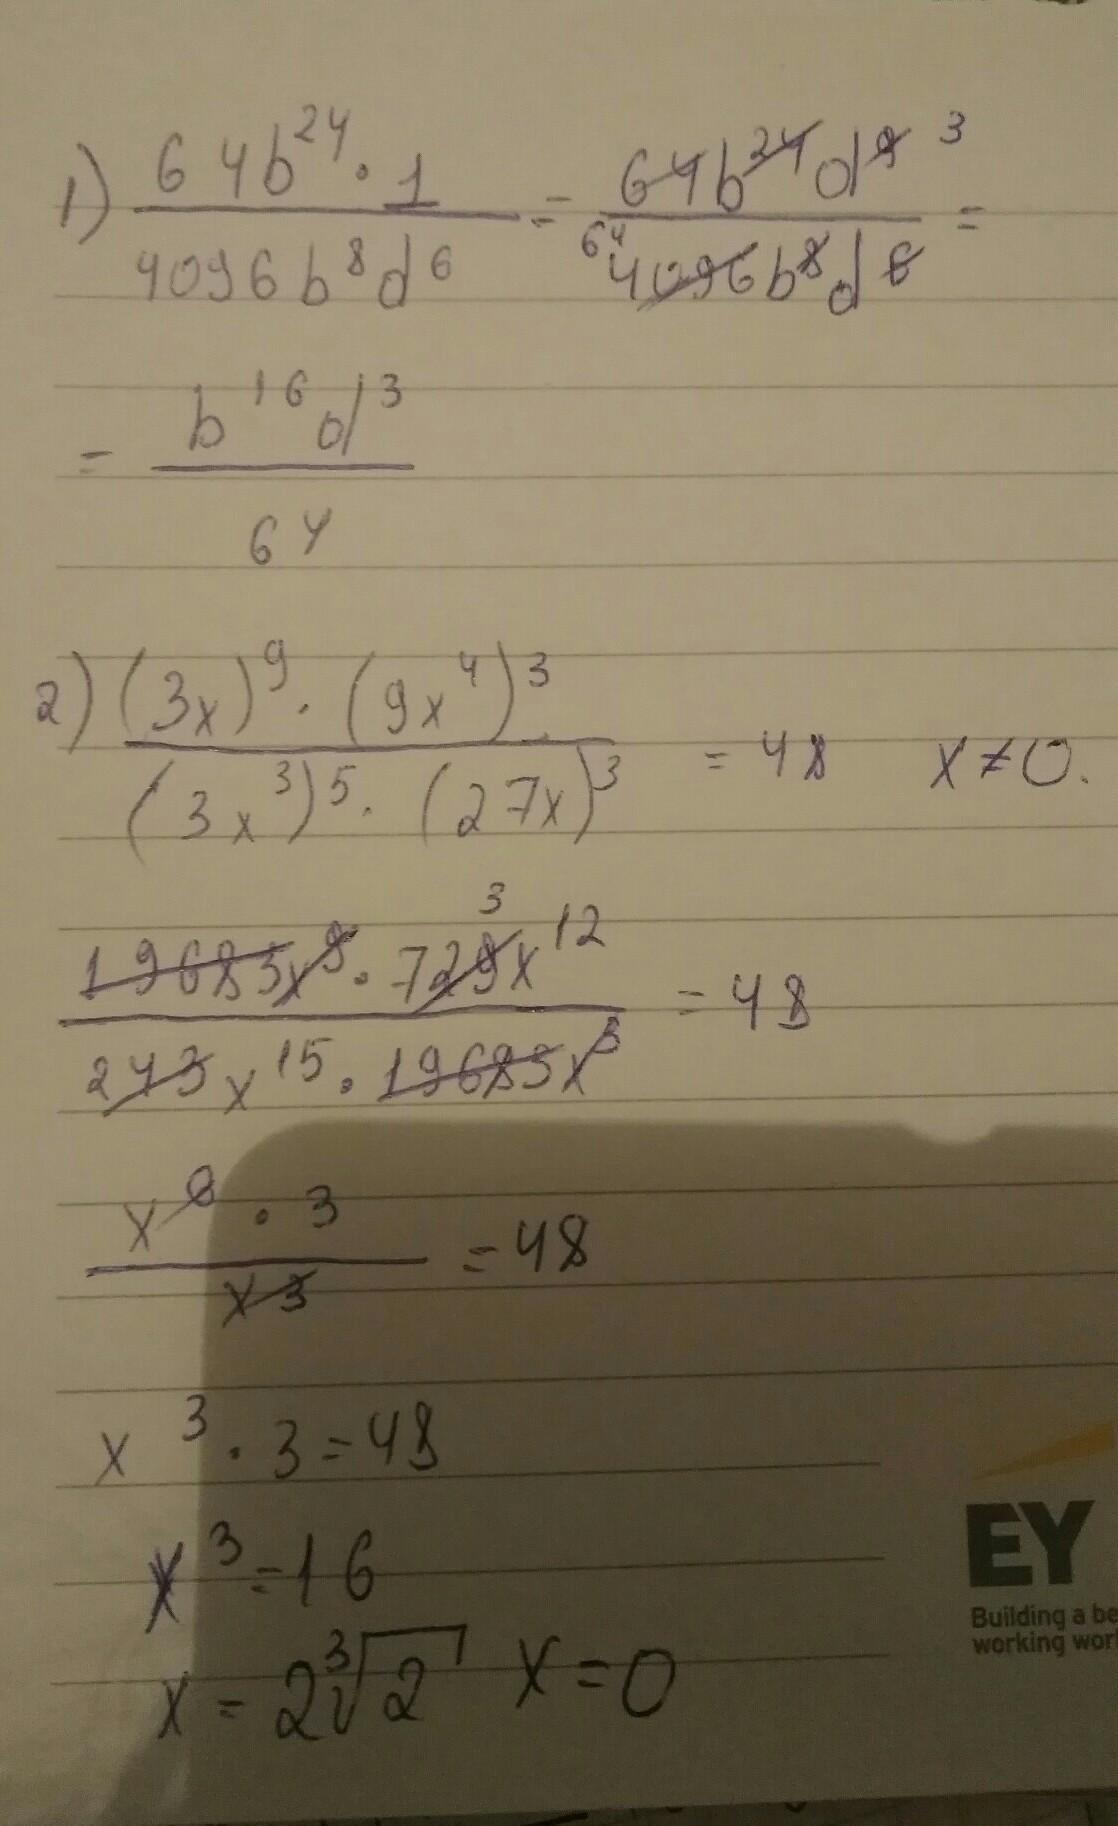 1) 64b²⁴ · 1 / 4096b⁸d⁶ = 64b²⁴d⁹ ³ / ⁶⁴ 4096b⁸d⁶ =
= b¹⁶d³ / 64
2) (3x)⁹ · (9x⁴)³ / (3x³)⁵ · (27x)³ = 48 x ≠ 0.
19683x⁹ · 729x¹² ³ / 243x¹⁵ · 19683x³ = 48
x⁶ · 3 / x³ = 48
x³ · 3 = 48
x³ = 16
x = 2∛2 x = 0
EY
Building a be
working wor